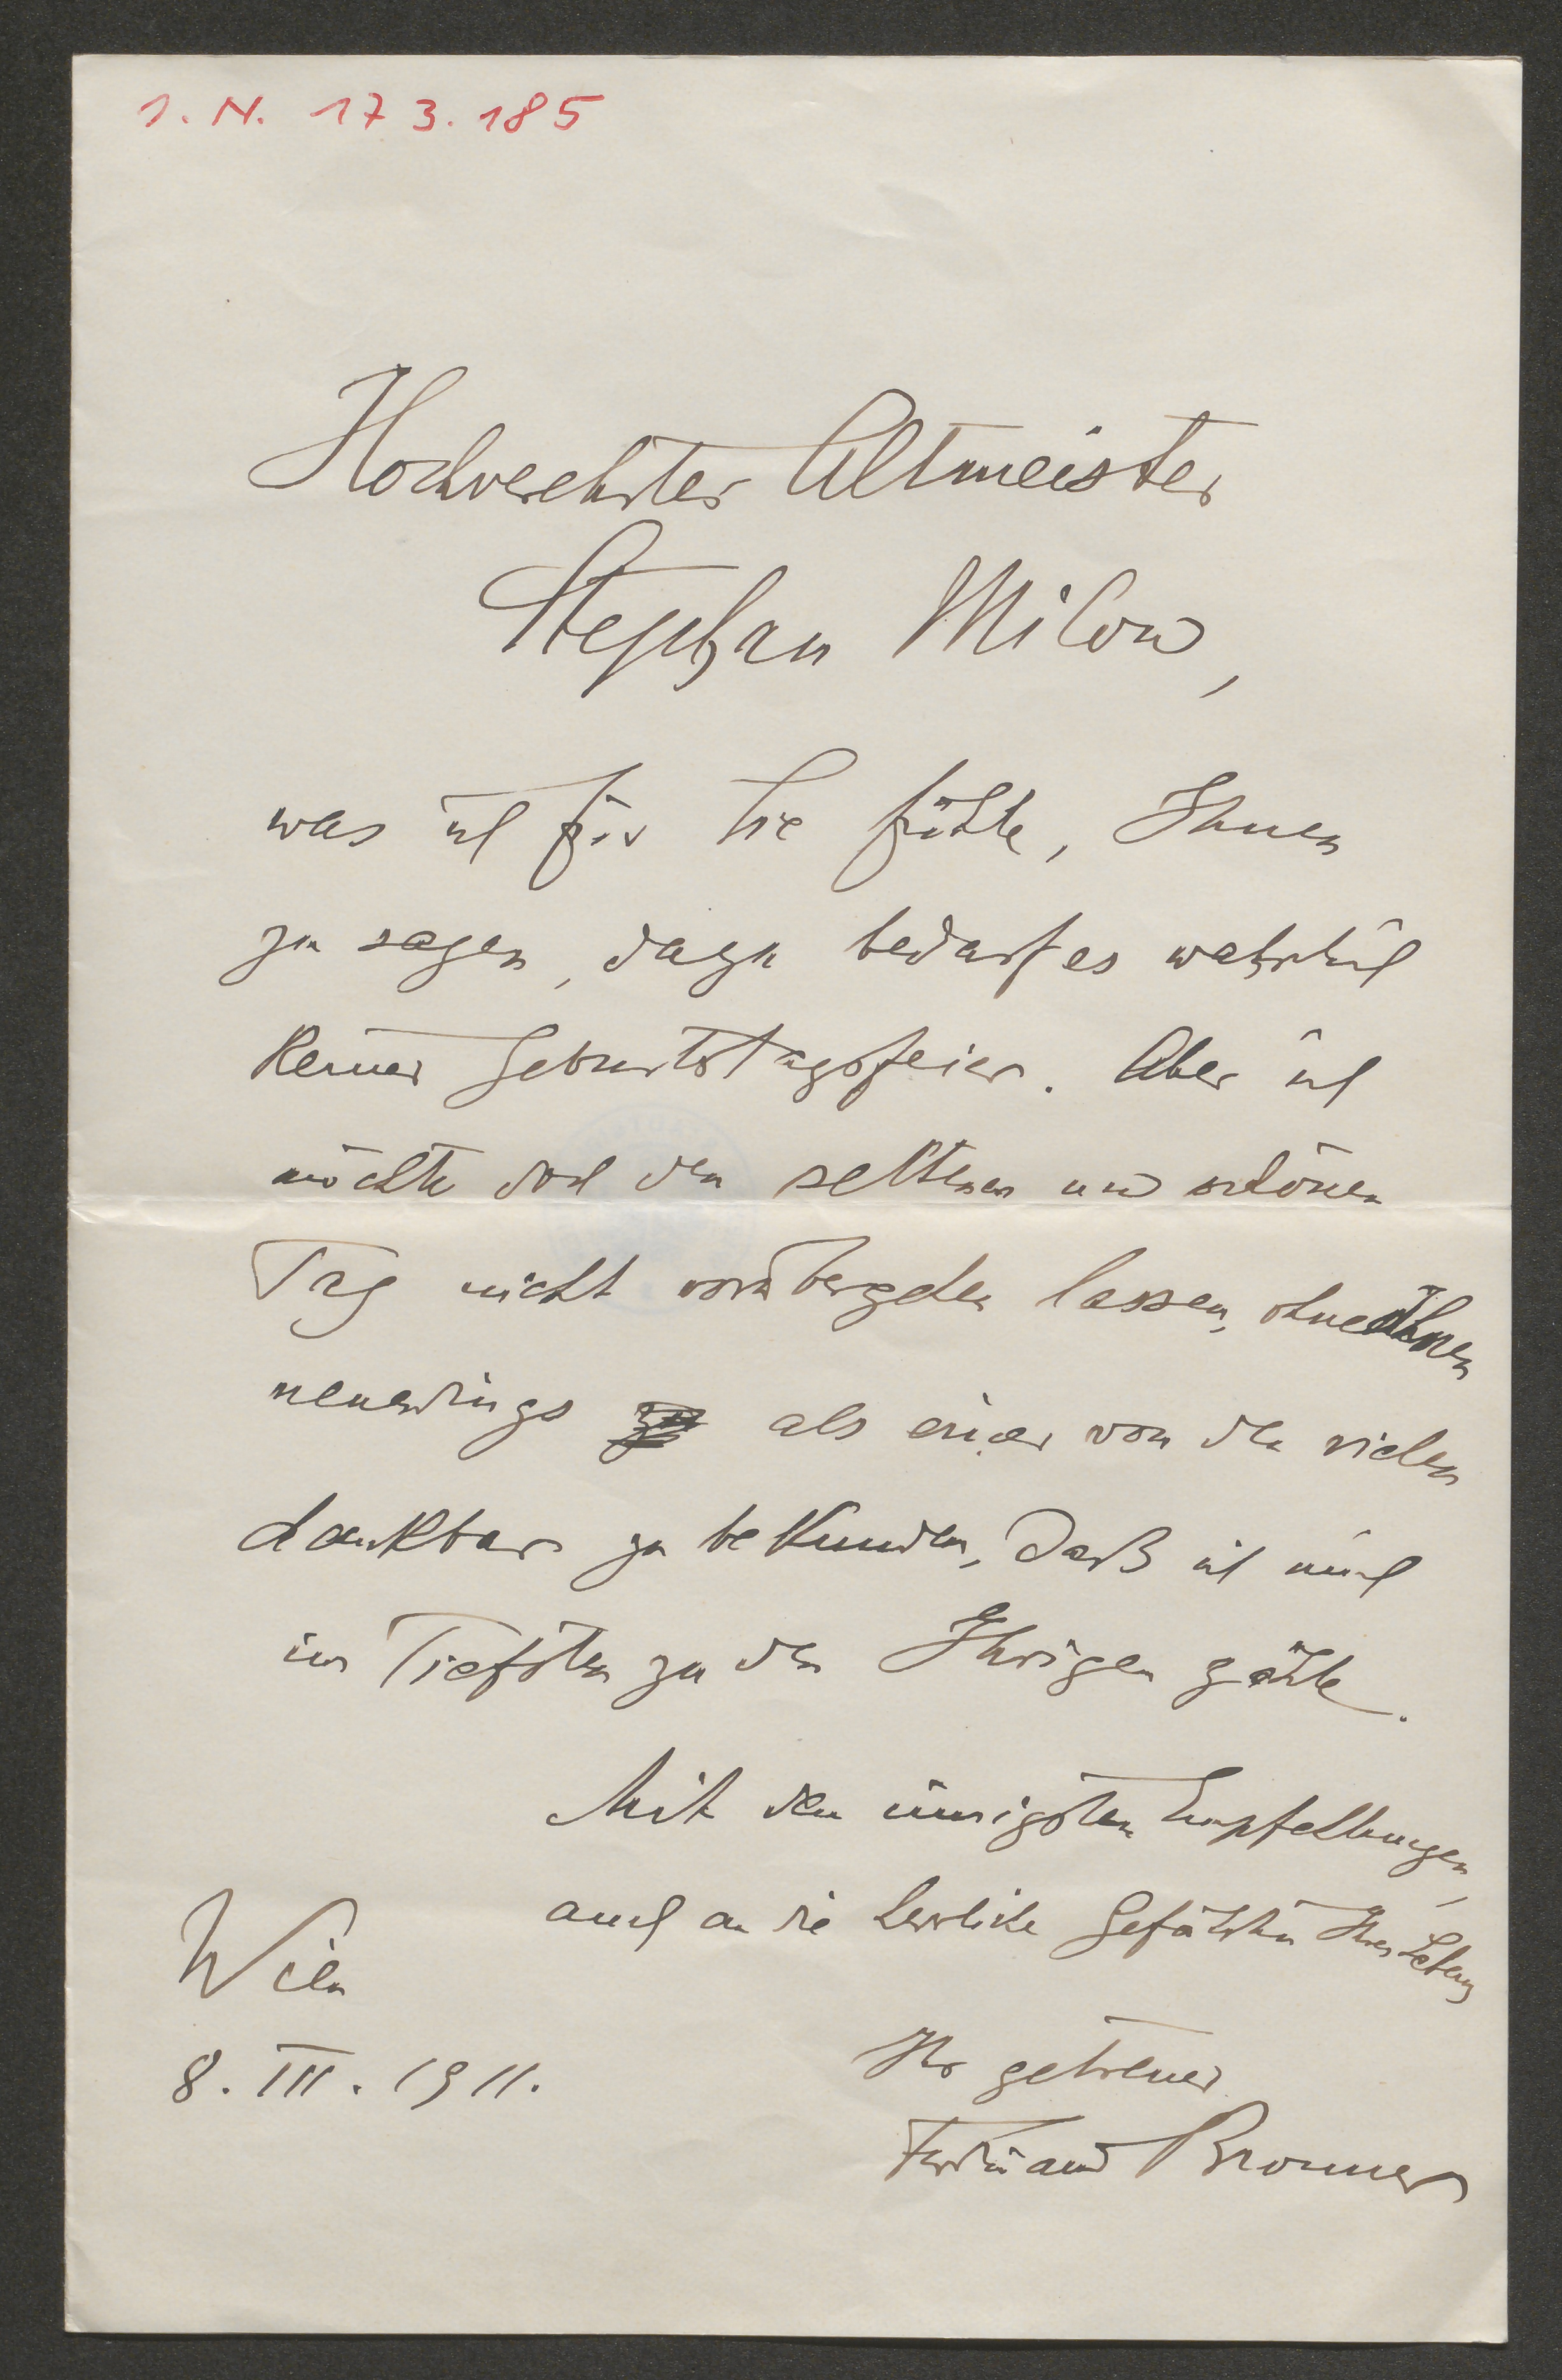 I. N. 173.185
Hochverehrter Altmeister
Stephan Milow,
was ich für Sie fühle, Ihnen
zu sagen, dazu bedarf es wahrlich
keiner Geburtstagsfeier. Aber ich
möchte doch den seltenen und schönen
Tag nicht vorübergehen lassen, ohne Ihnen
neuerdings als einer von den vielen
dankbar zu bekunden, daß ich mich
im Tiefsten zu den Ihrigen zähle.
Mit den innigsten Empfehlungen,
auch an die herrliche Gefährtin Ihres Lebens
Wien
8. III. 1911.
Ihr getreuer
Ferdinand Bronner